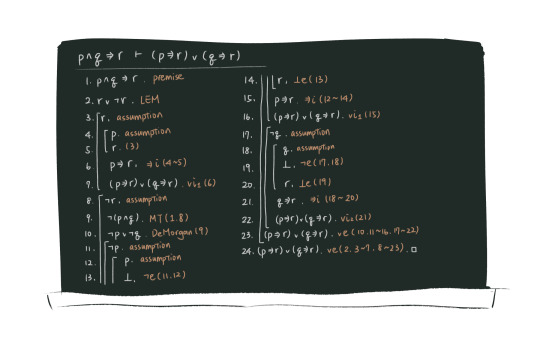 p∧q ⇒ r ⊢ (p⇒r) ∨ (q⇒r)
1. p∧q ⇒ r . premise
2. r ∨ ¬r . LEM
3. r, assumption
4. p. assumption
5. r. (3)
6. p⇒r, ⇒i (4~5)
7. (p⇒r) ∨ (q⇒r) . ∨i₁ (6)
8. ¬r, assumption
9. ¬(p∧q) . MT(1.8)
10. ¬p ∨ ¬q . DeMorgan(9)
11. ¬p. assumption
12. p. assumption
13. ⊥, ¬e(11.12)
14. r, ⊥e(13)
15. p⇒r. ⇒i (12~14)
16. (p⇒r) ∨ (q⇒r). ∨i₁ (15)
17. ¬q . assumption
18. q, assumption
19. ⊥, ¬e(17.18)
20. r, ⊥e(19)
21. q⇒r . ⇒i (18~20)
22. (p⇒r) ∨ (q⇒r). ∨i₂(21)
23. (p⇒r) ∨ (q⇒r). ∨e (10.11~16.17~22)
24. (p⇒r) ∨ (q⇒r). ∨e(2. 3~7. 8~23). □